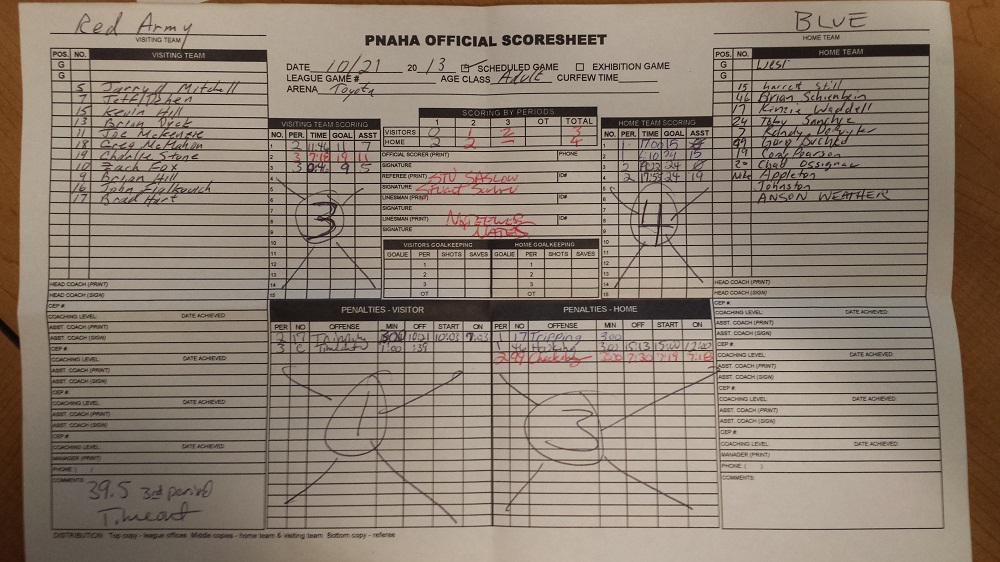 Red Army
VISITING TEAM
BLUE
HOME TEAM
PNAHA OFFICIAL SCORESHEET
DATE 10/21 2013 SCHEDULED GAME EXHIBITION GAME
LEAGUE GAME # AGE CLASS Adult CURFEW TIME
ARENA Toyota
POS. NO. VISITING TEAM
G
G
5 Mitchell
7 Jeff
15 Kevin Hill
13 Brian Dyck
11 Joe McKenzie
18 Greg McMahon
19 Charlie Stone
10 Zach Fox
9 Brian Hill
16 John Fialkovich
17 Brad Hart
HEAD COACH (PRINT)
HEAD COACH (SIGN)
CEP #:
COACHING LEVEL: DATE ACHIEVED:
ASST. COACH (PRINT)
ASST. COACH (SIGN)
CEP #:
COACHING LEVEL: DATE ACHIEVED:
ASST. COACH (PRINT)
ASST. COACH (SIGN)
CEP #:
COACHING LEVEL: DATE ACHIEVED:
ASST. COACH (PRINT)
ASST. COACH (SIGN)
CEP #:
COACHING LEVEL: DATE ACHIEVED:
MANAGER (PRINT)
PHONE: ( )
COMMENTS:
39.5 3rd period
Timeout
VISITING TEAM SCORING
NO. PER. TIME GOAL ASST
1 2 11:46 11 7
2 3 7:18 19 11
3 3 9 5
4
5
6
7
8
9
10
11
12
13
14
15
3
SCORING BY PERIODS
1 2 3 OT TOTAL
VISITORS 0 1 2 3
HOME 2 2 4
OFFICIAL SCORER (PRINT) PHONE
SIGNATURE
REFEREE (PRINT) STU SASLOW ID#
SIGNATURE Stuart
LINESMAN (PRINT) ID#
SIGNATURE
LINESMAN (PRINT) ID#
SIGNATURE
VISITORS GOALKEEPING HOME GOALKEEPING
GOALIE PER SHOTS SAVES GOALIE PER SHOTS SAVES
1 1
2 2
3 3
OT OT
HOME TEAM SCORING
NO. PER. TIME GOAL ASST
1 1 17:00 15
2 24 15
3 2 24
4 2 24 19
5
6
7
8
9
10
11
12
13
14
15
4
PENALTIES - VISITOR
PER NO OFFENSE MIN OFF START ON
2 17 10:21 10:03 7:03
3 C Timeout 1:00 :39
1
PENALTIES - HOME
PER NO OFFENSE MIN OFF START ON
1 17 Tripping 3:00
1 46 3:00 15:13 15:00 12:00
2 99 3:00 7:30 7:19
3
POS. NO. HOME TEAM
G West
G
15 Still
46 Brian
17 Kinzie Waddell
24 Toby
7 Randy
99 Gary
19 Pearson
20 Chad
Appleton
Johnston
ANSON WEATHER
HEAD COACH (PRINT)
HEAD COACH (SIGN)
CEP #:
COACHING LEVEL: DATE ACHIEVED:
ASST. COACH (PRINT)
ASST. COACH (SIGN)
CEP #:
COACHING LEVEL: DATE ACHIEVED:
ASST. COACH (PRINT)
ASST. COACH (SIGN)
CEP #:
COACHING LEVEL: DATE ACHIEVED:
ASST. COACH (PRINT)
ASST. COACH (SIGN)
CEP #:
COACHING LEVEL: DATE ACHIEVED:
MANAGER (PRINT)
PHONE: ( )
COMMENTS:
DISTRIBUTION: Top copy - league offices Middle copies - home team & visiting team Bottom copy - referee